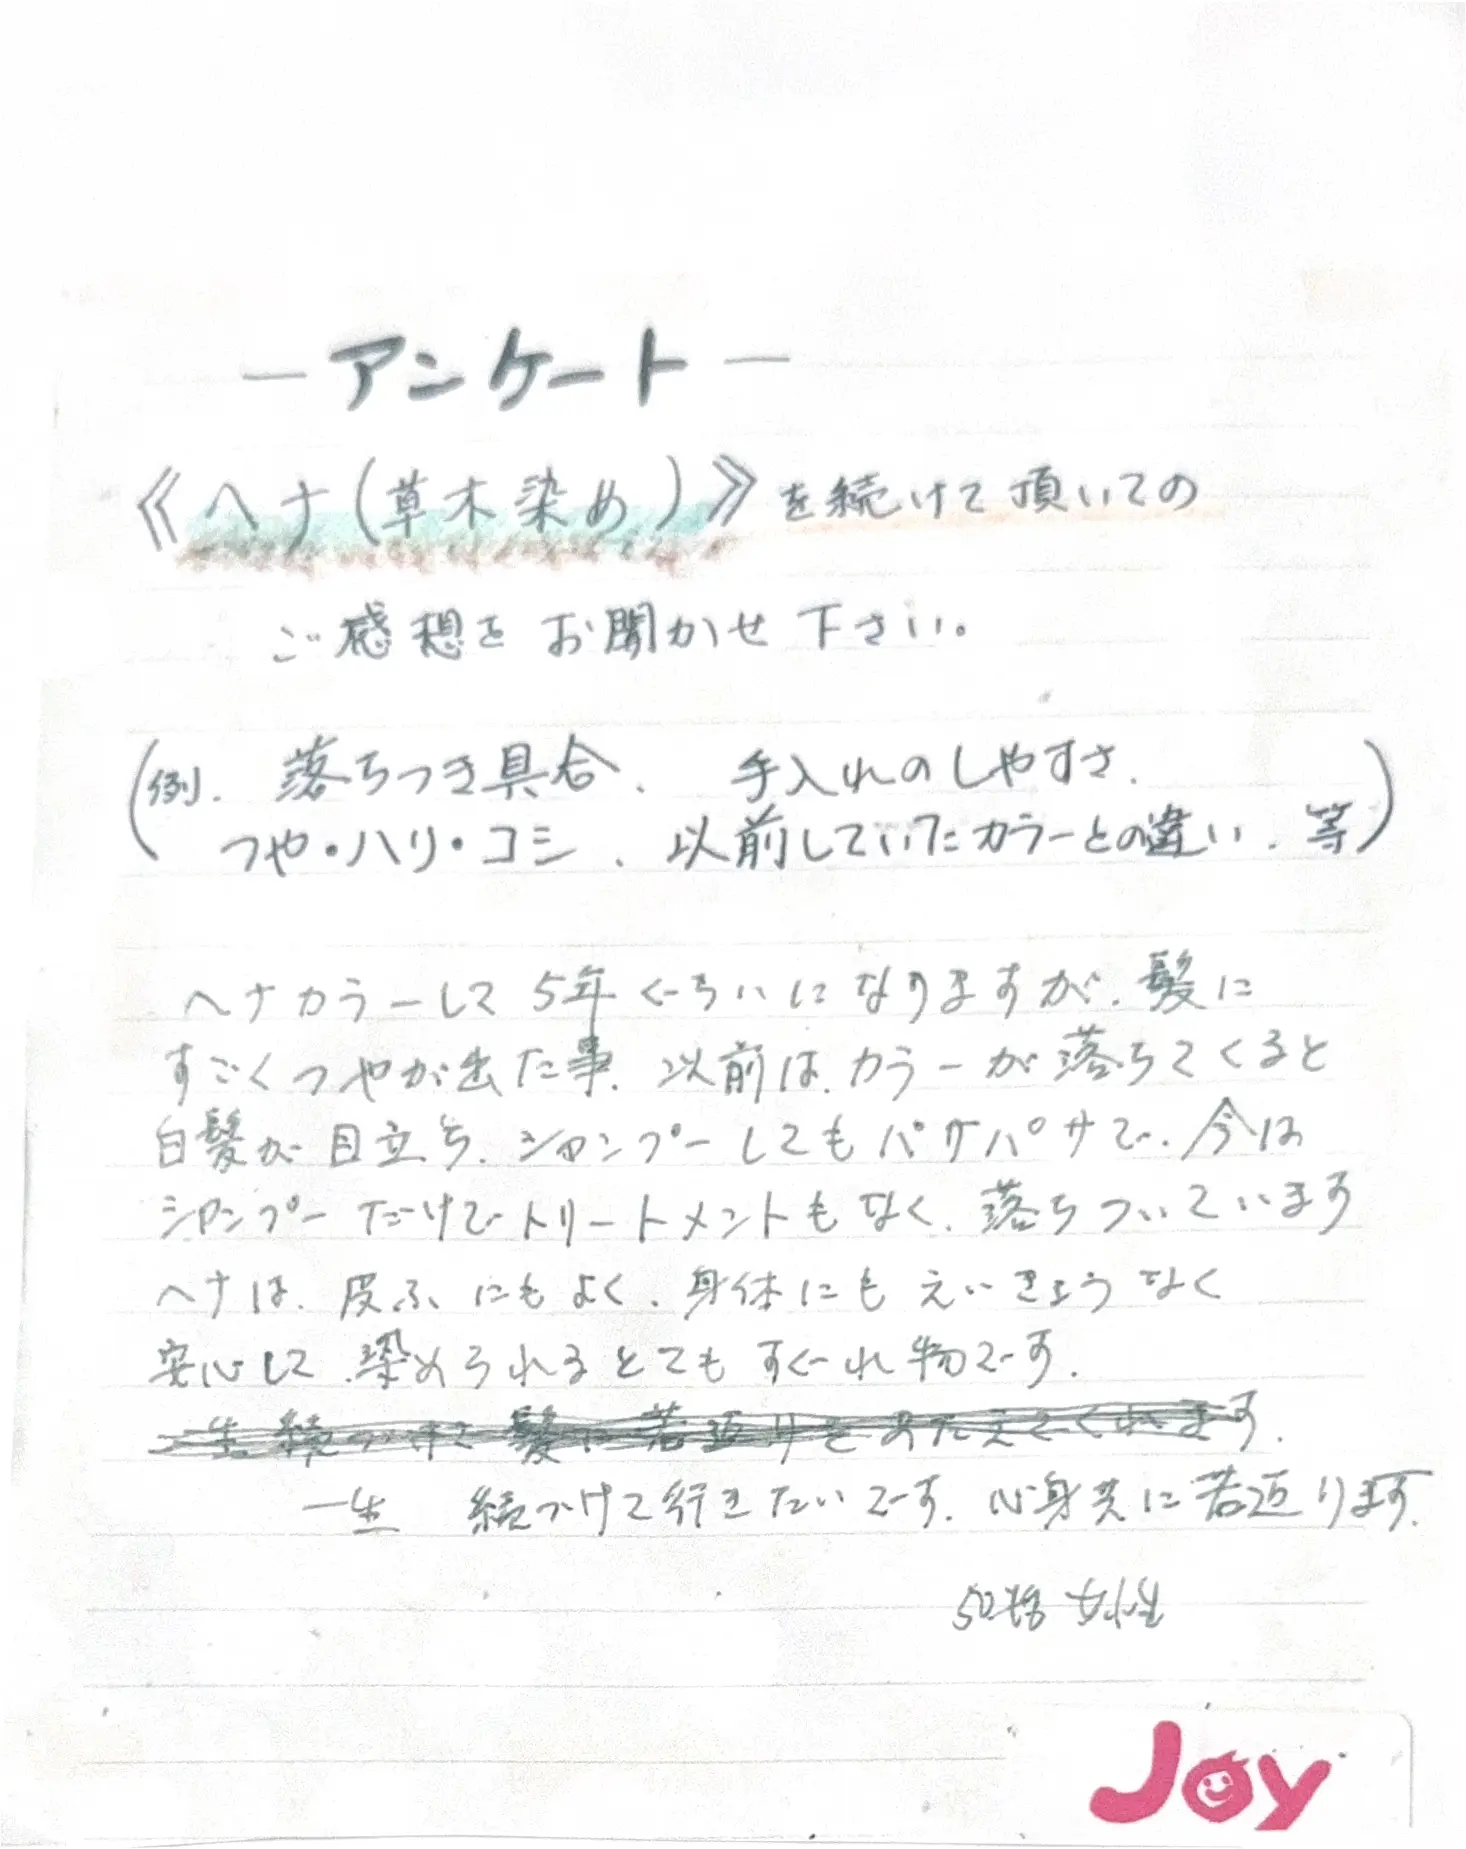 ーアンケートー
《ヘナ(草木染め)》を続けて頂いての
ご感想をお聞かせ下さい。
(例. 落ちつき具合、 手入れのしやすさ、
つや・ハリ・コシ、以前していたカラーとの違い、等)
ヘナカラーして5年ぐらいになりますが、髪に
すごくつやが出た事、以前は、カラーが落ちてくると
白髪が目立ち、シャンプーしてもパサパサで、今は
シャンプーだけでトリートメントもなく、落ちついています
ヘナは、皮ふにもよく、身体にもえいきょうなく
安心して、染められるとてもすぐれ物です。
一生続つけて髪に若返りをあたえてくれます。
一生 続つけて行きたいです。心身共に若返ります。
50代 女性
Joy